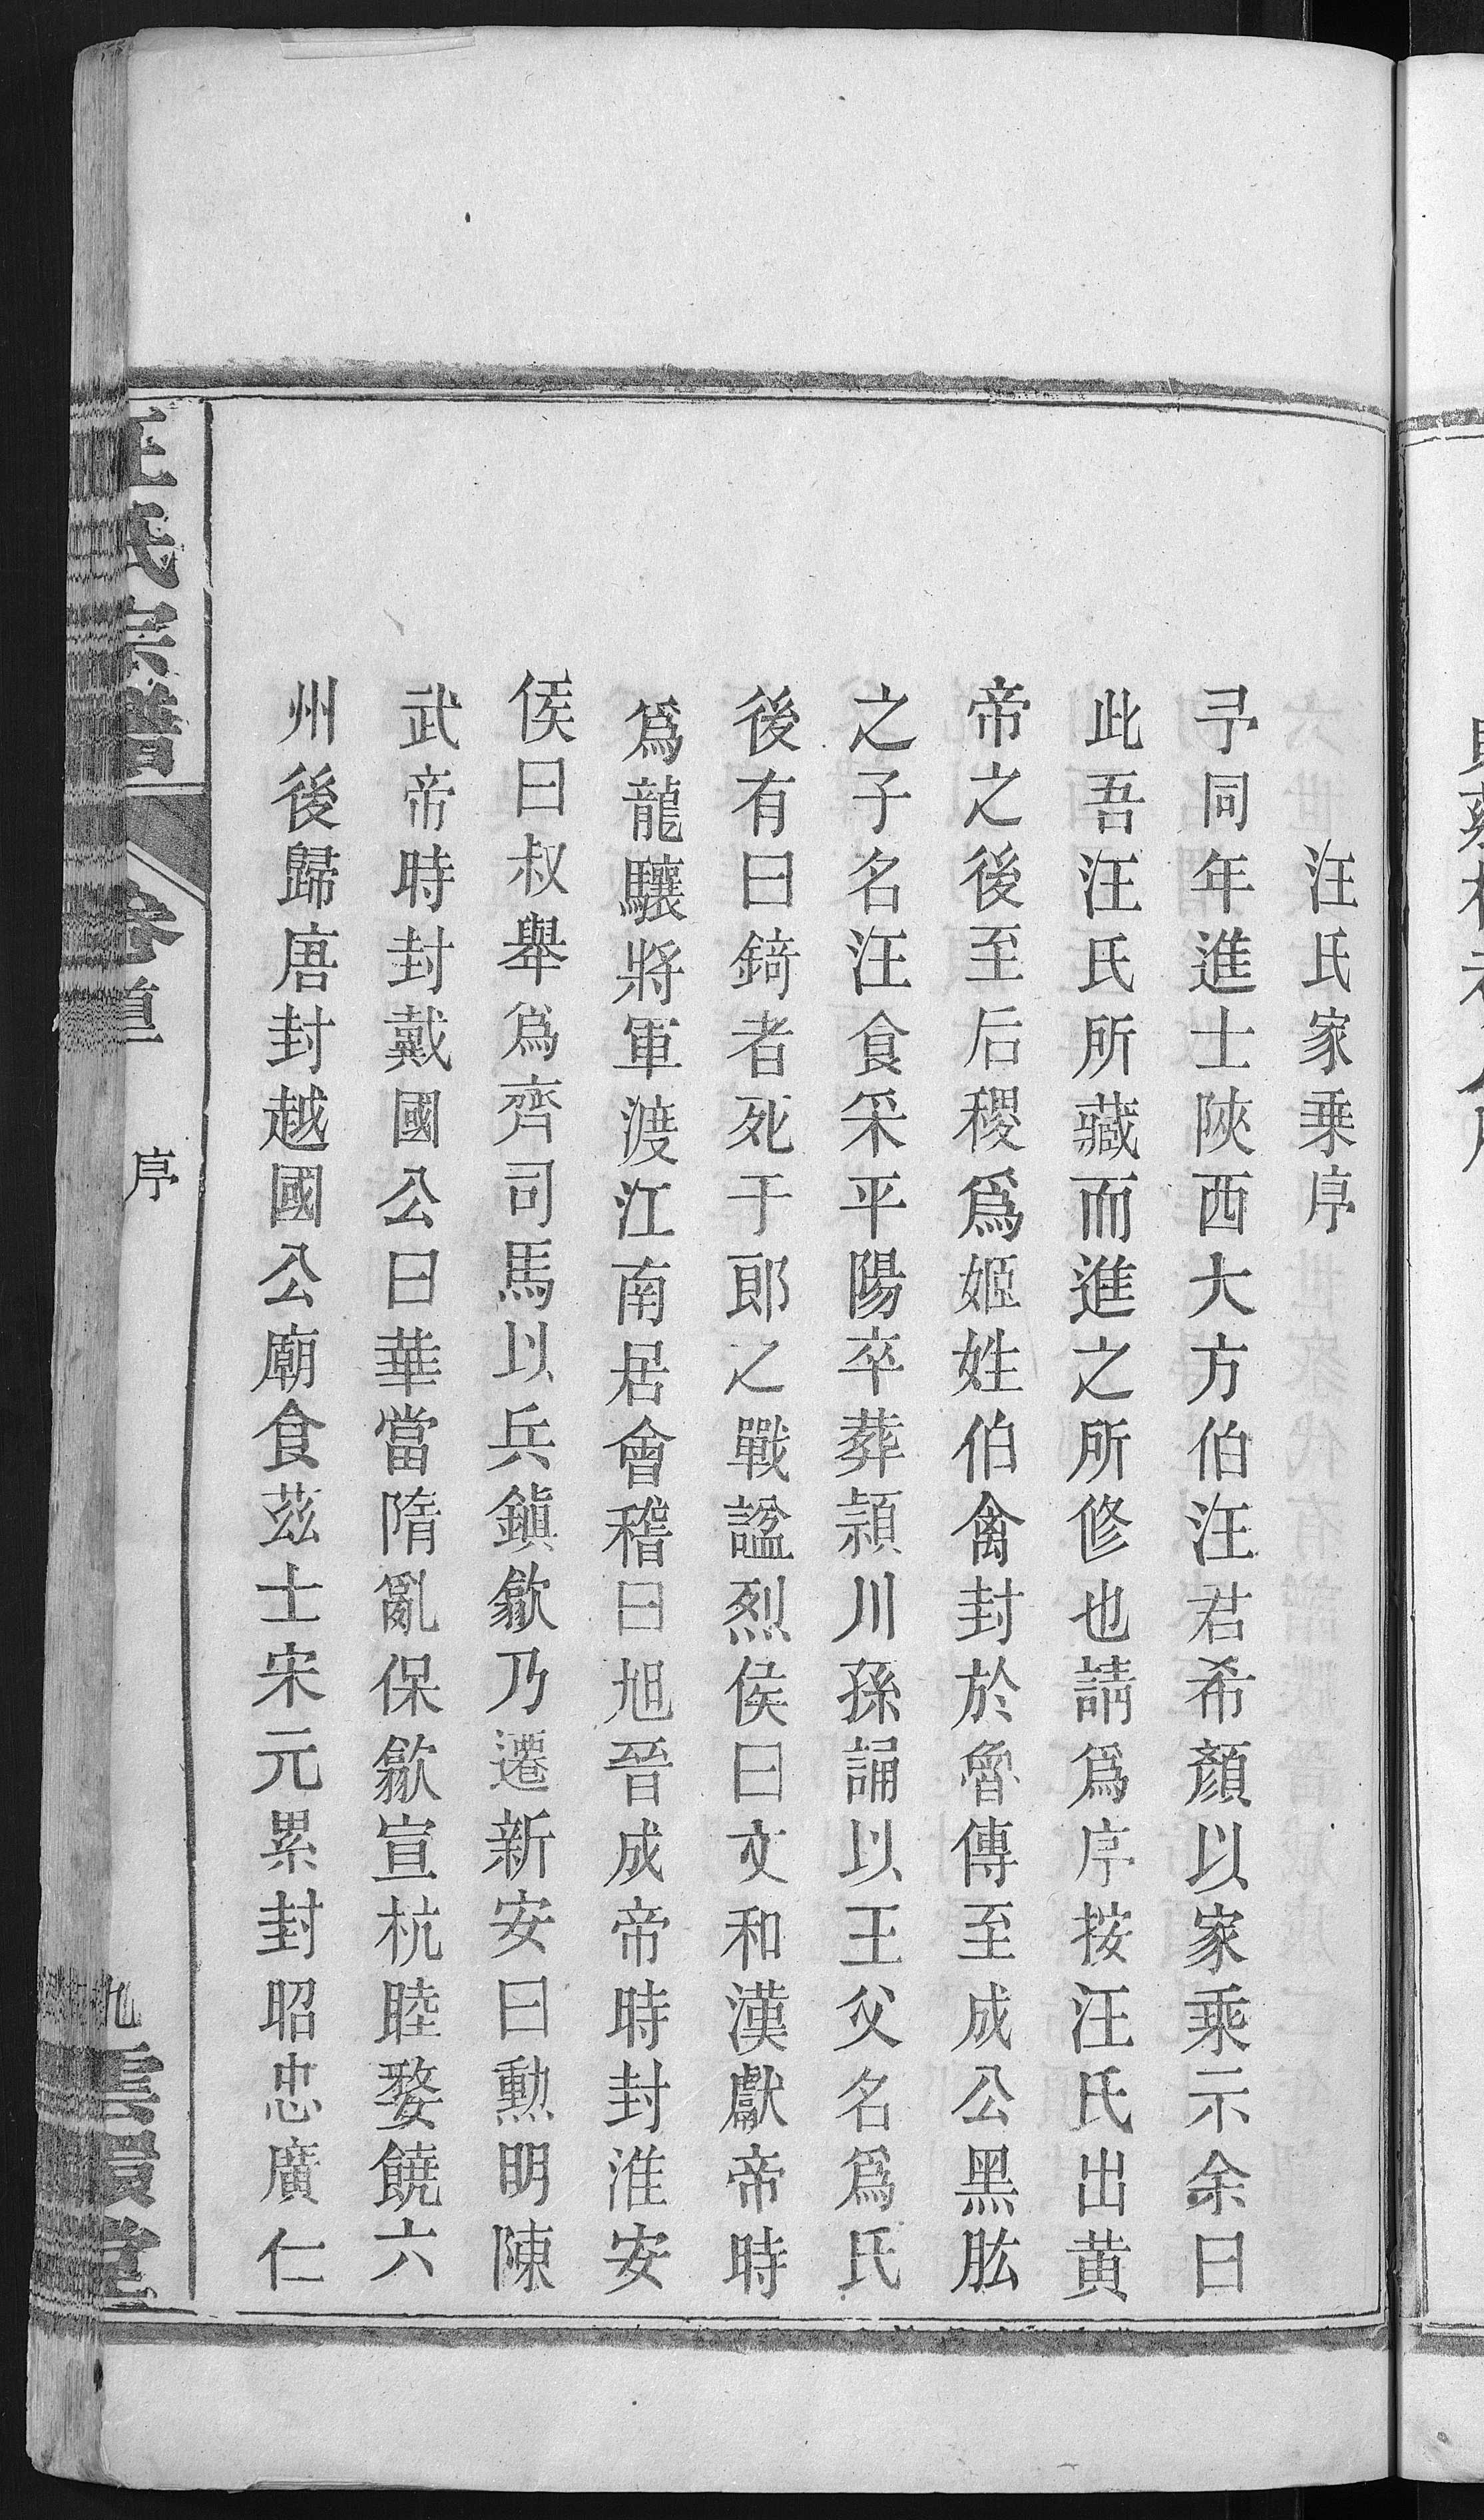 汪氏家乗序
予同年進士陝西大方伯汪君希顏以家乘示余曰
此吾汪氏所藏而進之所修也請爲序按汪氏出黄
帝之後至后稷爲姬姓伯禽封於魯傳至成公黑肱
之子名汪食采平陽卒葬潁川孫誦以王父名爲氏
後有曰錡者死于郎之戰諡烈侯曰文和漢獻帝時
爲龍驤將軍渡江南居會稽曰旭晉成帝時封淮安
侯曰叔舉爲齊司馬以兵鎭歙乃遷新安曰勳明陳
武帝時封戴國公曰華當隋亂保歙宣杭睦婺饒六
州後歸唐封越國公廟食茲土宋元累封昭忠廣仁
汪氏宗譜 卷首 序 九